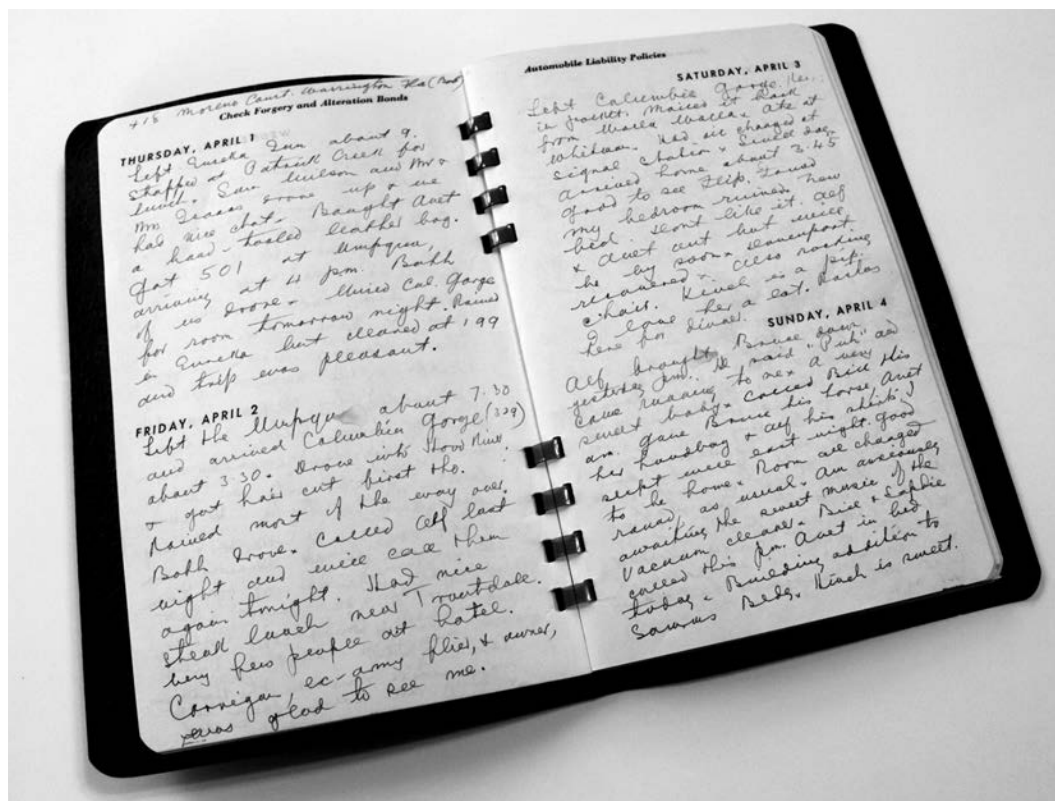 418 Moreno Court. Warrington Fla
Check Forgery and Alteration Bonds
THURSDAY, APRIL 1
Left Eureka Inn about 9.
Stopped at Patrick Creek for
lunch. Sam Wilson and Mr &
Mrs. drove up & we
had nice chat. Bought Aunt
a hand-tooled leather bag.
Got 501 at Umpqua,
arriving at 4 pm. Both
of us drove. Wired Col. Gorge
for room tomorrow night. Rained
in Eureka but cleared at 199
and trip was pleasant.
FRIDAY, APRIL 2
Left the Umpqua about 7:30
and arrived Columbia Gorge (329)
about 3:30. Drove into Hood River
& got hair cut first tho.
Rained most of the way over.
Both drove. Called Alf last
night and will call them
again tonight. Had nice
steak lunch near Troutdale.
Very few people at hotel.
Corrigan, ex-army flier, & owner,
was glad to see me.
Automobile Liability Policies
SATURDAY, APRIL 3
Left Columbia Gorge
in jacket. it back
from Walla Walla. Ate at
Whitman. Had oil changed at
signal station &
Arrived home about 3:45
good to see Flip. Found
my bedroom ruined. New
bed. Don't like it. Alf
& Aunt out but will
be by soon. davenport
recovered & also rocking
chair. is a pip.
I gave her a
here for dinner.
SUNDAY, APRIL 4
Alf brought Bruce down
yesterday pm. He said and
came running to me. A very
sweet baby. Called Bill this
am. Gave Bruce his horse, Aunt
her handbag & Alf his shirt. I
slept well last night. Good
to be home. Room all changed
round, as usual. Am anxiously
awaiting the sweet music of the
vacuum cleaner. Bill & Sophie
called this pm. Aunt in bed
today. Building addition to
Bldg. is sweet.